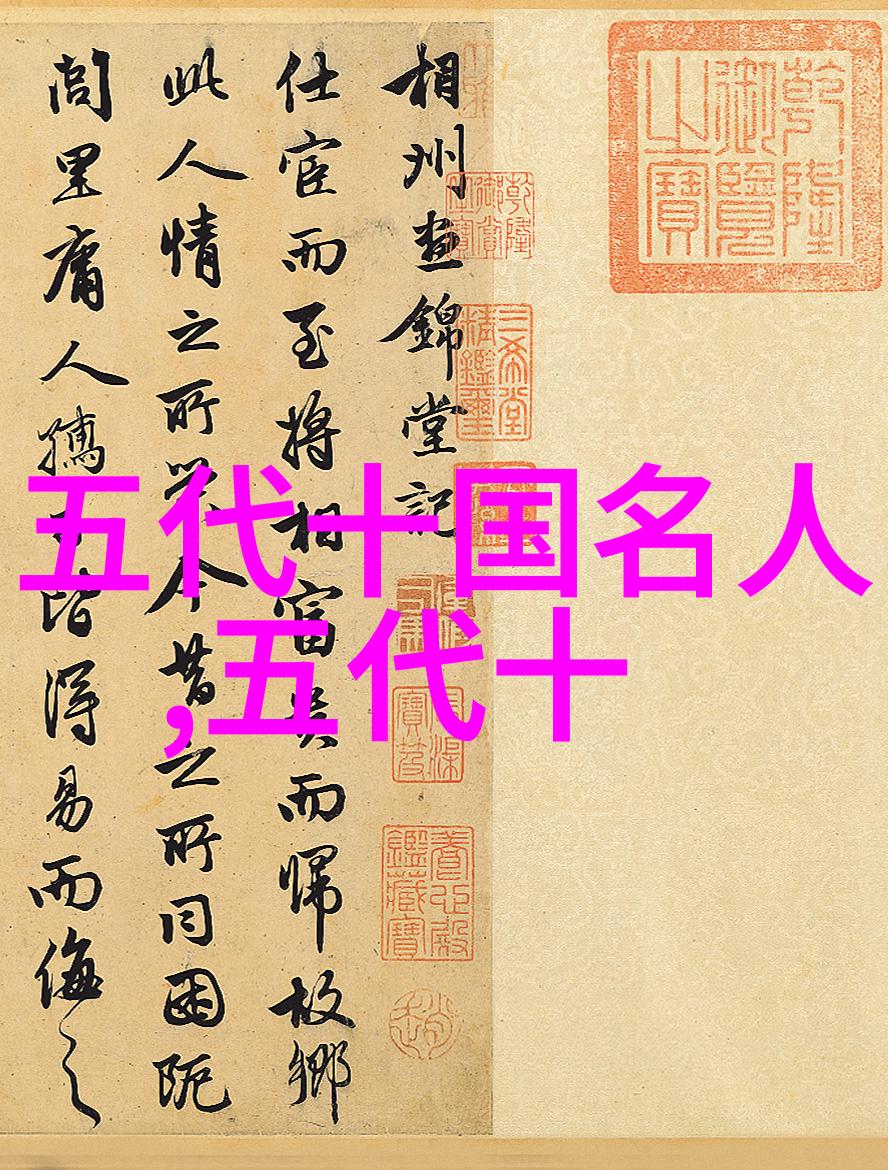 乾隆御覽之寶
三希堂精鑑璽
養心殿鑑藏寶
趙
相州晝錦堂記
仕宦而至將相富貴而歸故鄉
此人情之所榮今昔之所同困阨
閭里庸人孺子皆得易而侮之
五代十国名人
,五代十